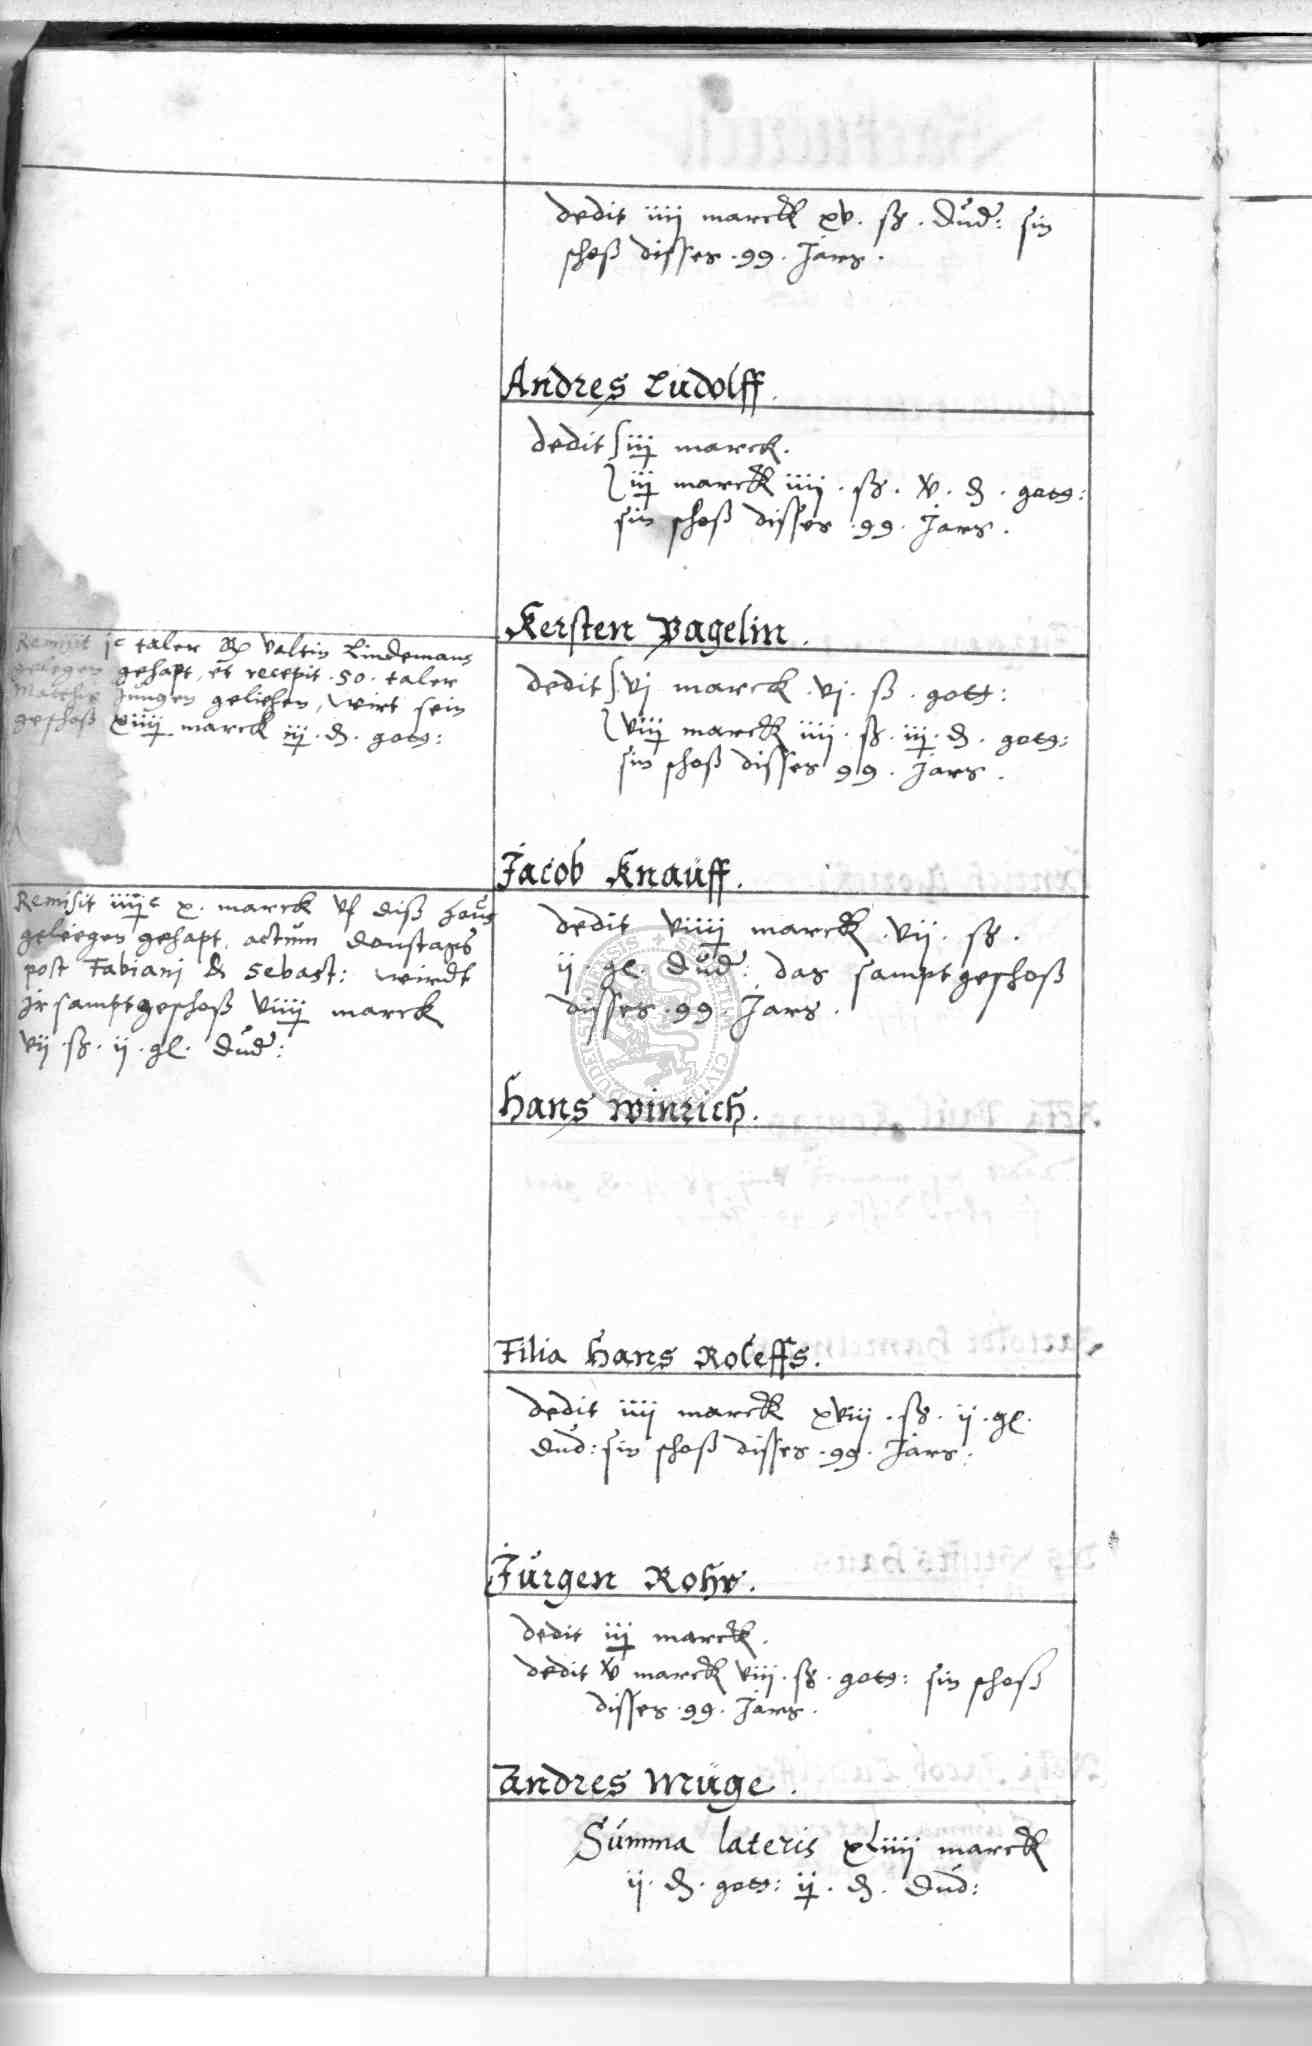 dedit iiij marck xv. ß. Dud: sin
schoß disses .99. Jars.
Andres Ludolff.
dedit iij marck.
iij marck iiij. ß. v. d. gott:
sin schoß disses .99. Jars.
Kersten Pagelin.
Remisit jc taler Valtin Lindemans
gelegen gehapt, et recepit .50. taler
Matthis Jungen geliehen, wirt sein
geschoß xiiij marck iij. d. gott:
dedit vj marck .vj. ß. gott:
viij marck iiij. ß. iij. d. gott:
sin schoß disses 99. Jars.
Jacob Knauff.
Remisit iiijc x. marck uf diß haus
gelegen gehapt. actum Donstags
post Fabiani & Sebast: wirdt
Jr samptgeschoß viiij marck
vij. ß. ij. gl. Dud:
dedit viiij marck .vij. ß.
ij. gl. Dud: das samptgeschoß
disses .99. Jars.
Hans Winrich.
Filia Hans Roleffs.
dedit iiij marck xviij. ß. ij. gl.
Dud: sin schoß disses .99. Jars.
Jurgen Rohr.
dedit iij marck.
dedit v marck viij. ß. gott: sin schoß
disses .99. Jars.
Andres Muge.
Summa lateris xliiij marck
ij. d. gott: ij. d. Dud: